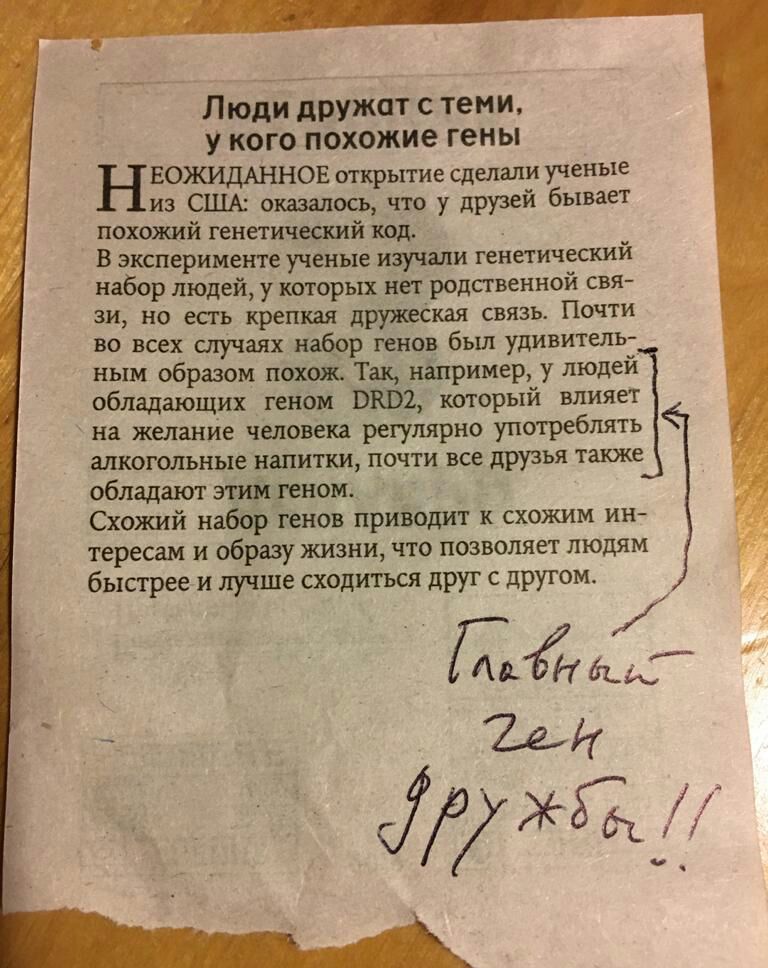 Люди дружат с теми,
у кого похожие гены
НЕОЖИДАННОЕ открытие сделали ученые
из США: оказалось, что у друзей бывает
похожий генетический код.
В эксперименте ученые изучали генетический
набор людей, у которых нет родственной свя-
зи, но есть крепкая дружеская связь. Почти
во всех случаях набор генов был удивитель-
ным образом похож. Так, например, у людей
обладающих геном DRD2, который влияет
на желание человека регулярно употреблять
алкогольные напитки, почти все друзья также
обладают этим геном.
Схожий набор генов приводит к схожим ин-
тересам и образу жизни, что позволяет людям
быстрее и лучше сходиться друг с другом.
Главный
ген
дружбы!!